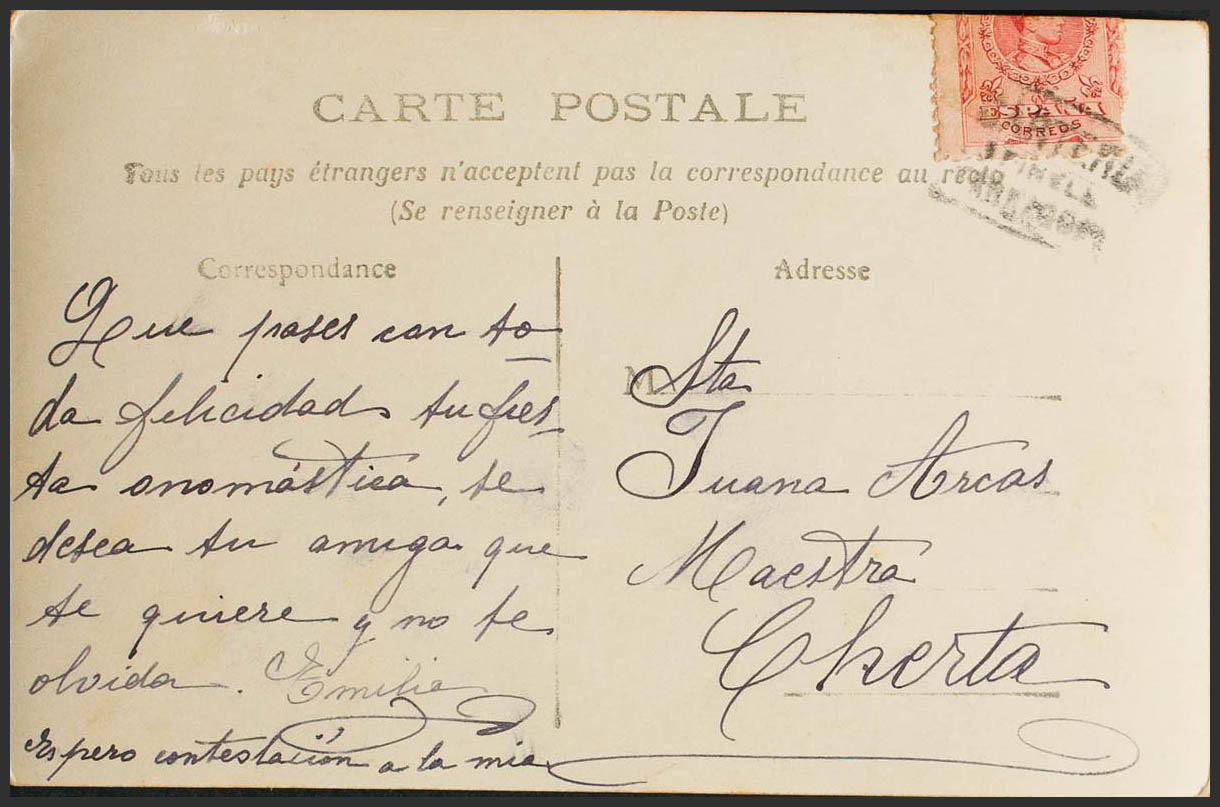 CARTE POSTALE
Tous les pays étrangers n'acceptent pas la correspondance au recto
(Se renseigner à la Poste)
ESPAÑA
CORREOS
Correspondance
Que pases con to-
da felicidad tu fies-
ta onomástica, te
desea tu amiga que
te quiere y no te
olvida. Emilia
Espero contestación a la mia
Adresse
M
Sta
Juana Arcas
Maestra
Cherta